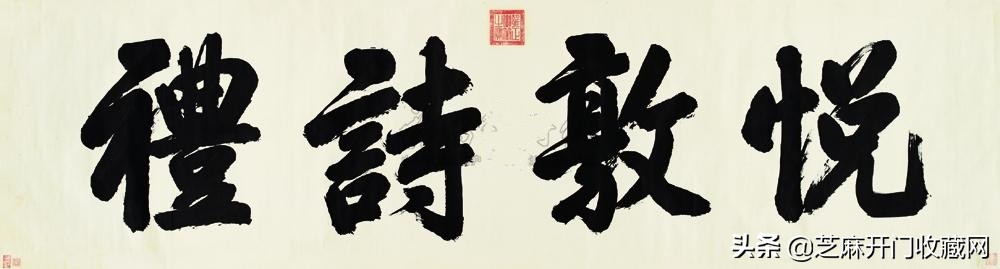 悦敦詩禮
头条 @芝麻开门收藏网